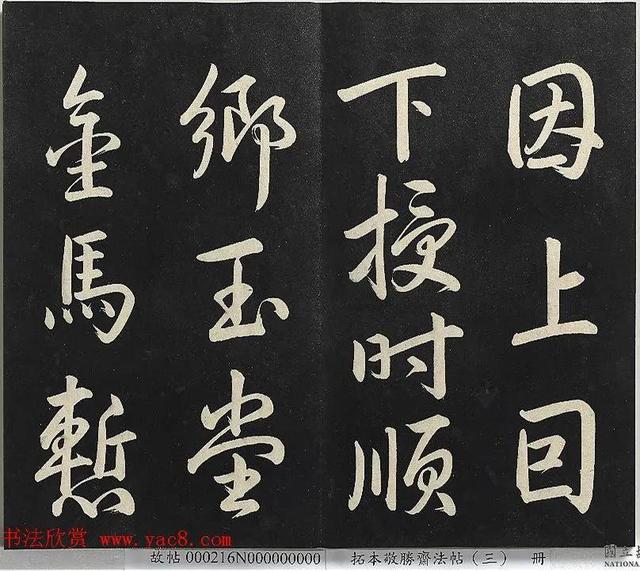 因上回
下授时顺
鄉玉堂
金馬慙
书法欣赏 www.yac8.com
故帖 000216N000000000 拓本敬勝齋法帖(三) 冊
NATIONAL